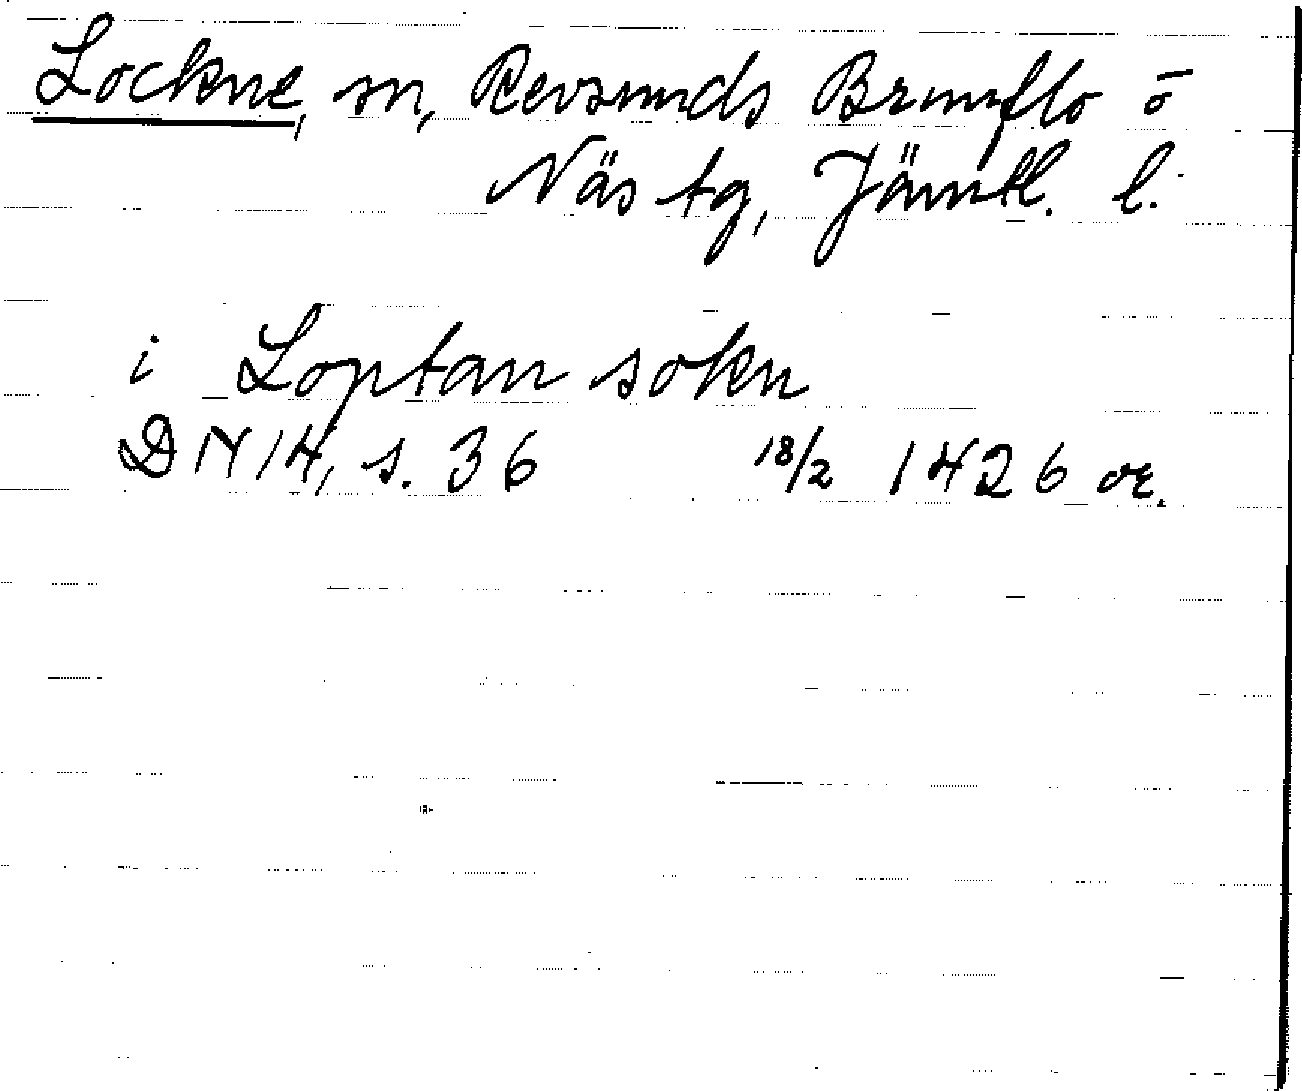 Lockne, sn, Revsunds Brunflo o
Näs tg, Jämtl. l.
i Loptan sokn
DN 14, s. 36 18/2 1426 or.